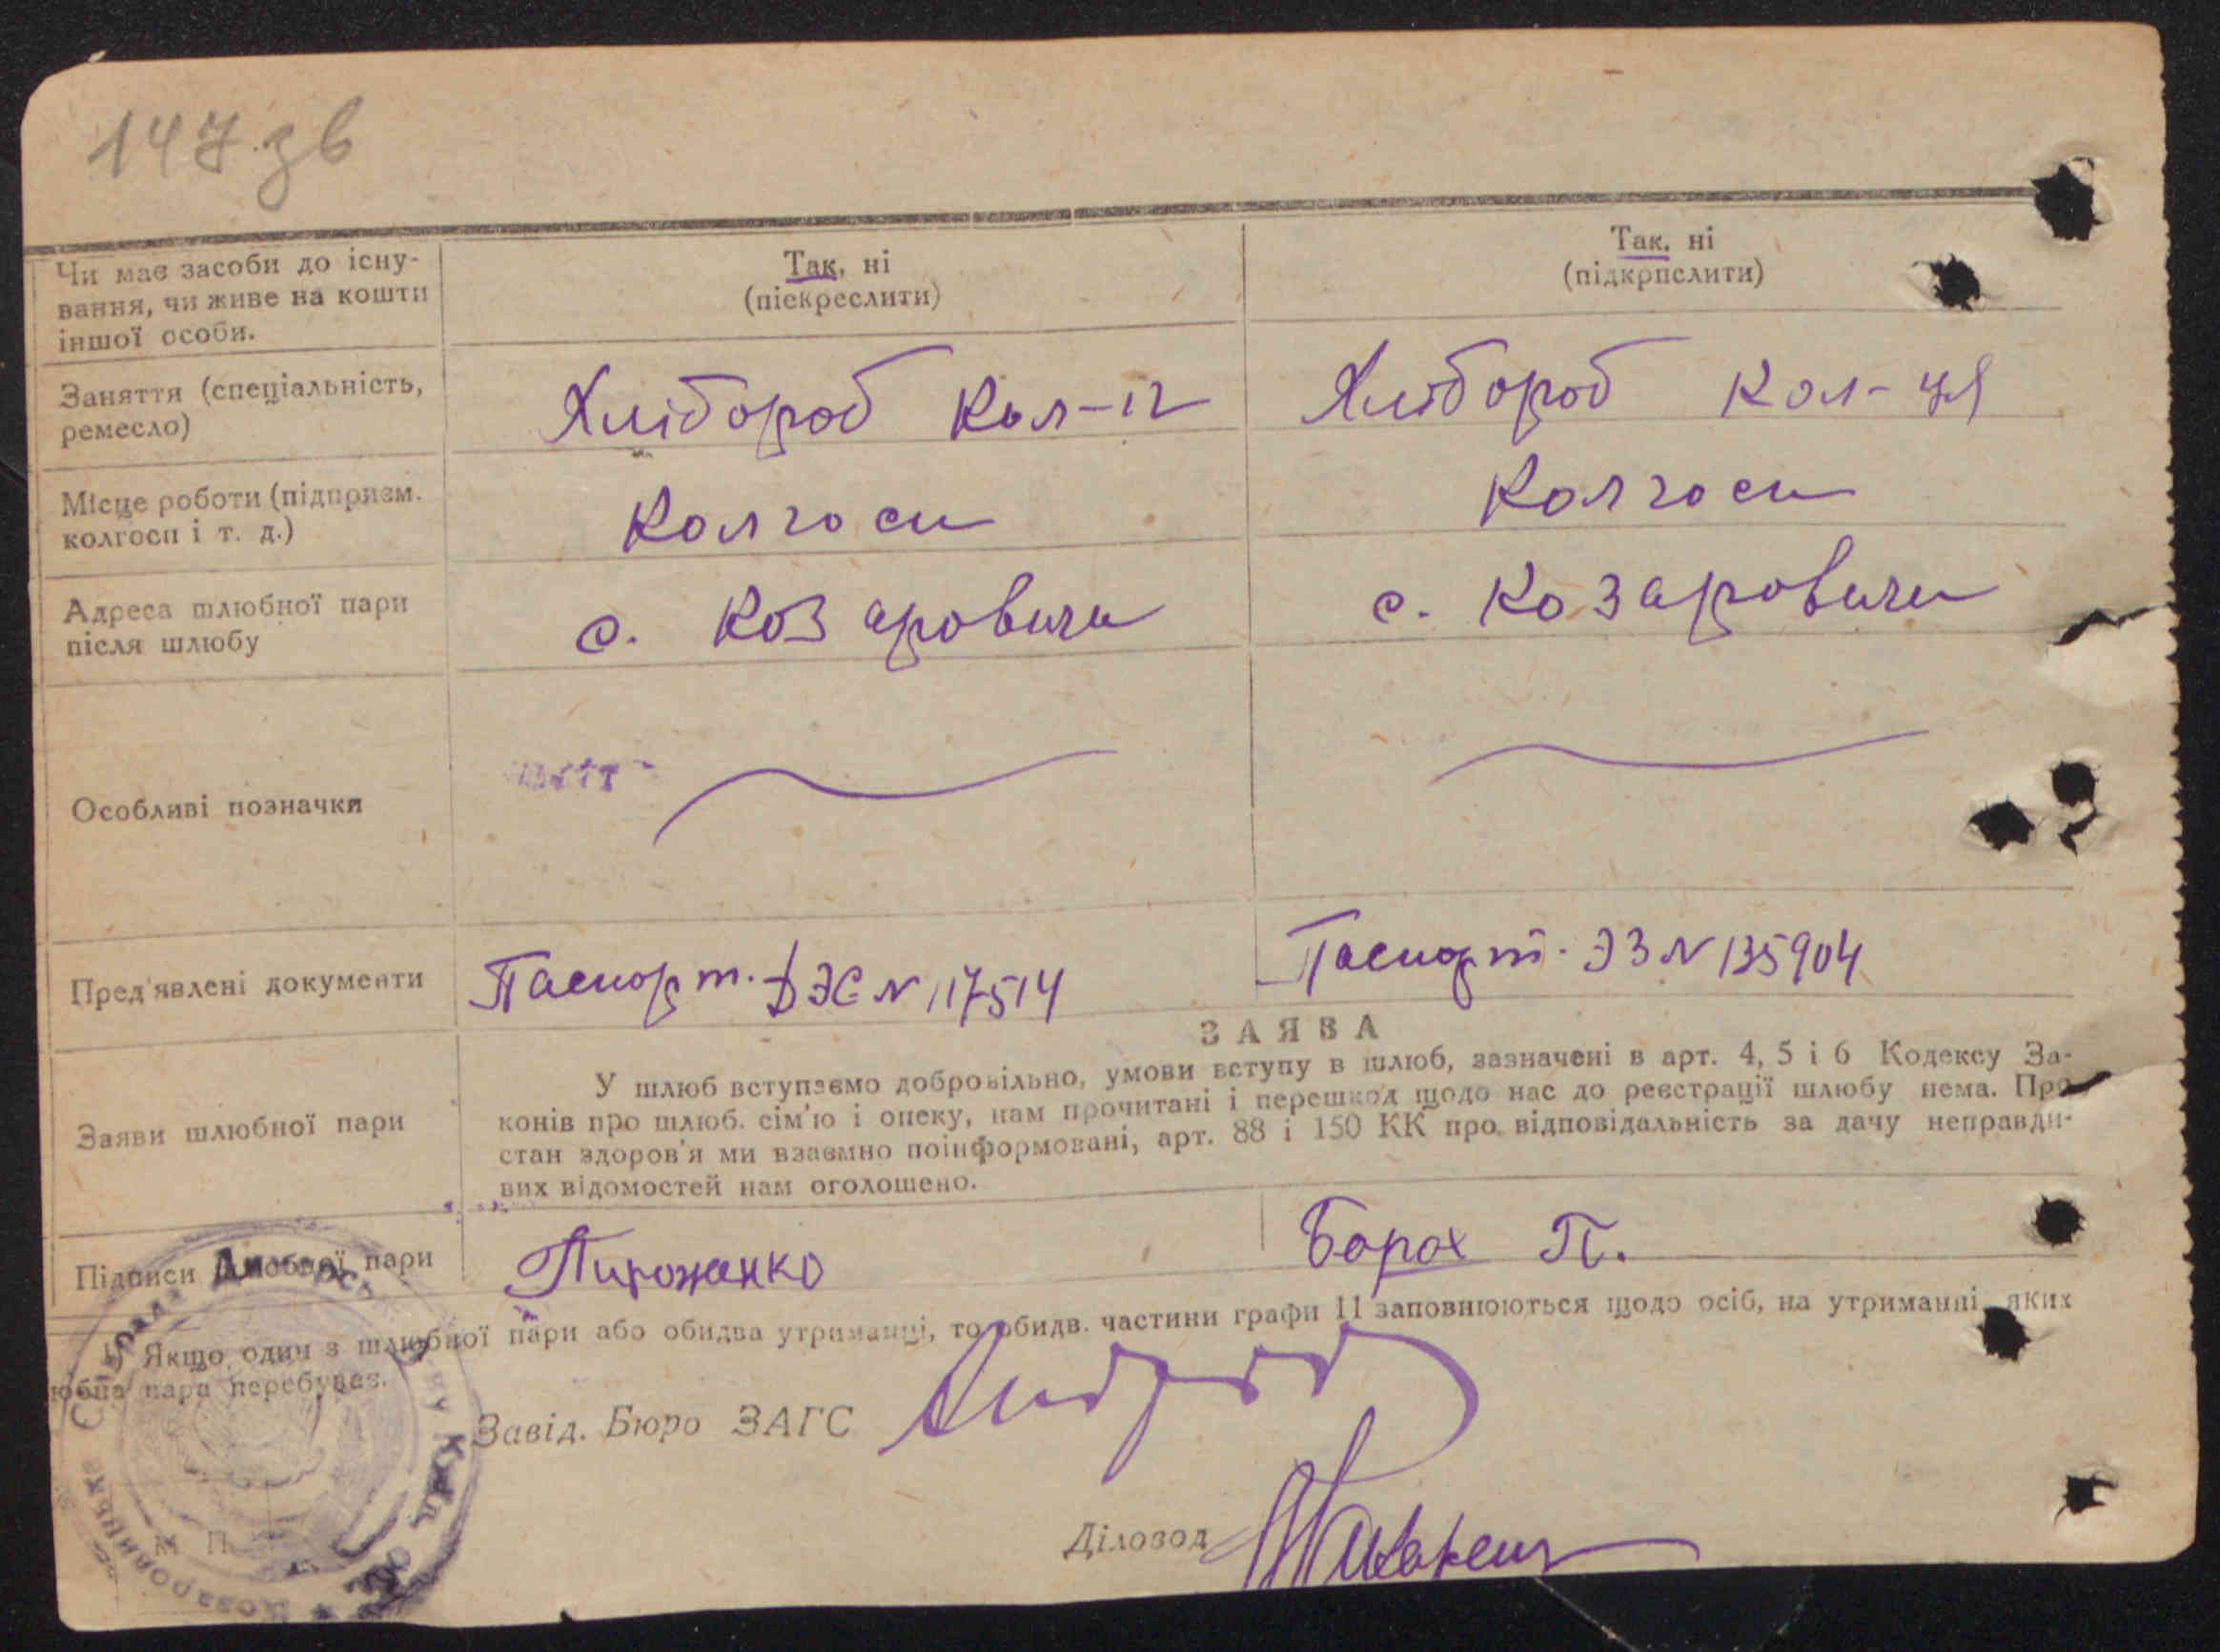 147 зв
Чи має засоби до існу-
вання, чи живе на кошти
іншої особи.
Так, ні
(піскреслити)
Так, ні
(підкрпслити)
Заняття (спеціальність,
ремесло)
Хлібороб Кол-к
Хлібороб Кол-ця
Місце роботи (підприєм.
колгосп і т. д.)
Колгосп
Колгосп
Адреса шлюбної пари
після шлюбу
с. Козаровичи
с. Козаровичи
Особливі позначки
Пред'явлені документи
Паспорт. ЭС N 117514
Паспорт. ЭЗ N 135904
ЗАЯВА
Заяви шлюбної пари
У шлюб вступаємо добровільно, умови вступу в шлюб, зазначені в арт. 4, 5 і 6 Кодексу За-
конів про шлюб. сім'ю і опеку, нам прочитані і перешкод щодо нас до реєстрації шлюбу нема. Про
стан здоров'я ми взаємно поінформовані, арт. 88 і 150 КК про відповідальність за дачу неправди-
вих відомостей нам оголошено.
Підписи шлюбної пари
Пироженко
Борох П.
Якщо один з шлюбної пари або обидва утриманці, то обидв. частини графи 11 заповнюються щодо осіб, на утриманні яких
юбна пара перебуває.
Завід. Бюро ЗАГС
Діловод
М П.